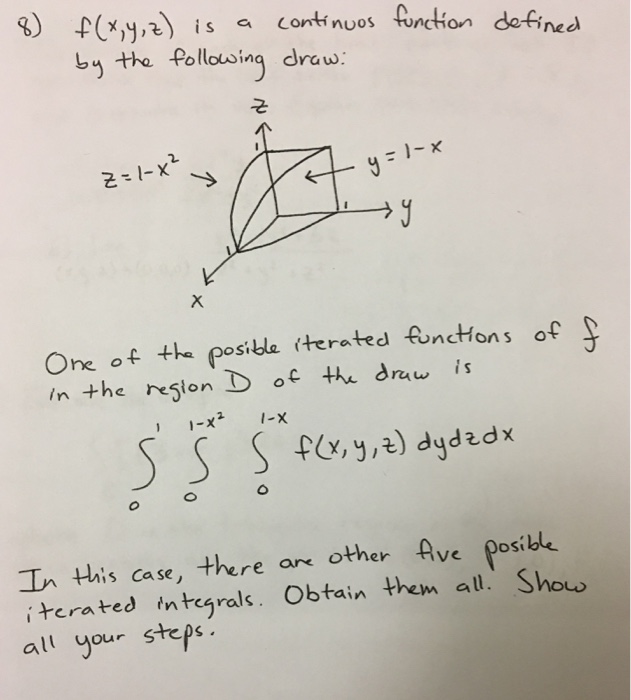 8) f(x,y,z) is a continuos function defined
by the following draw:
z
1
z=1-x² →
← y=1-x
1
y
1
x
One of the posible iterated functions of f
in the region D of the draw is
∫₀¹ ∫₀^(1-x²) ∫₀^(1-x) f(x,y,z) dydzdx
In this case, there are other five posible
iterated integrals. Obtain them all. Show
all your steps.